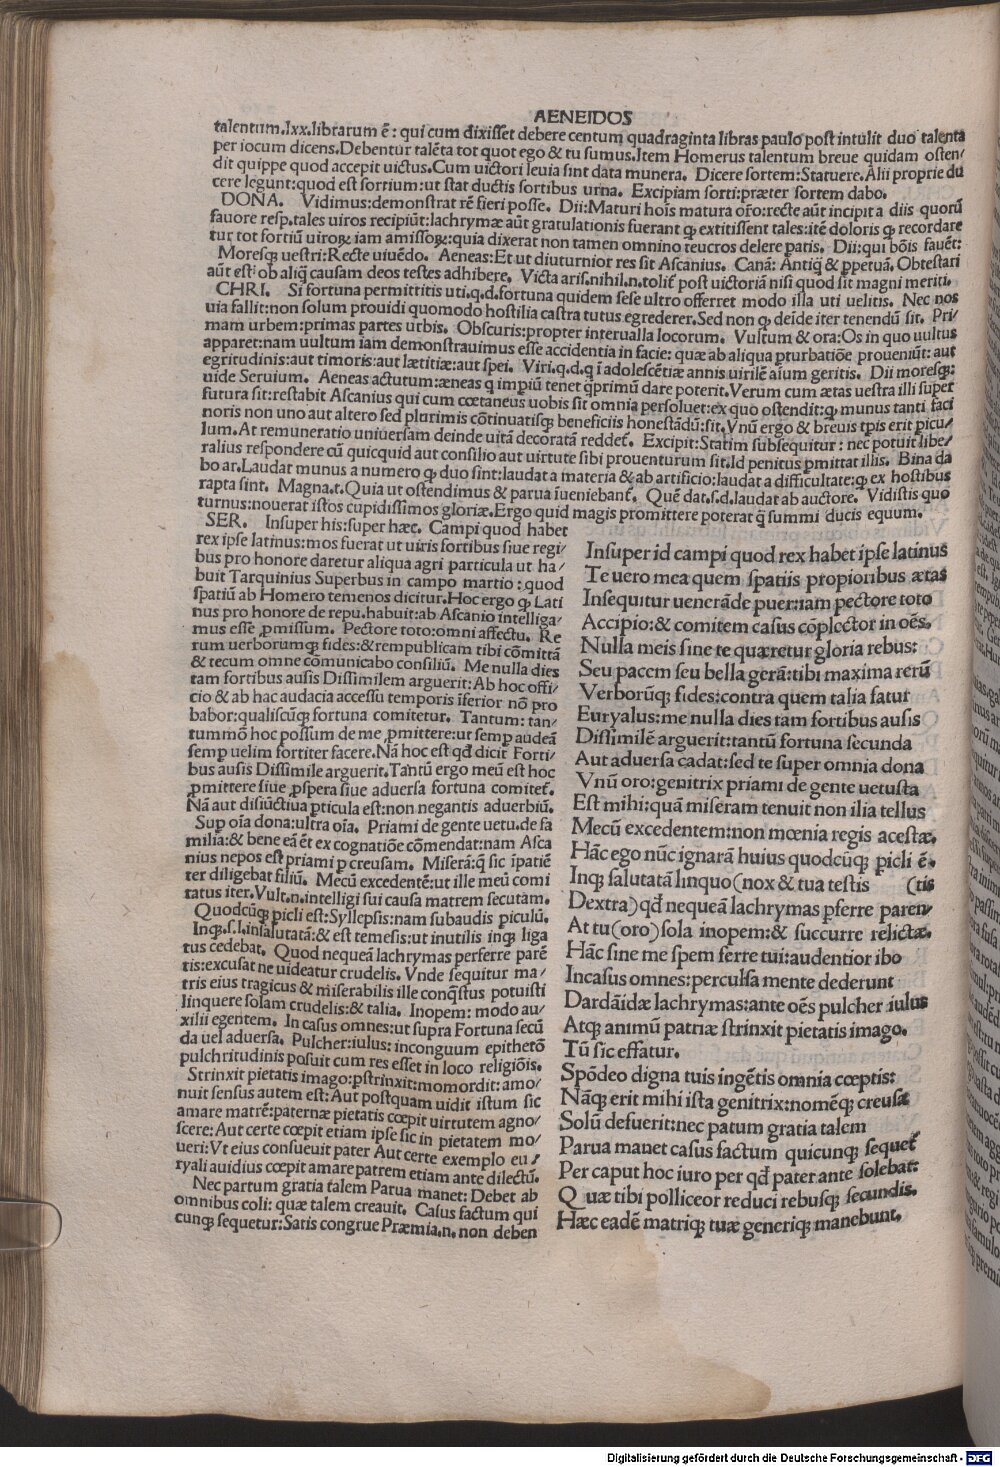 AENEIDOS
talentum.lxx.librarum ē : qui cum dixisset debere centum quadraginta libras paulo post intulit duo talenta
per iocum dicens.Debentur talēta tot quot ego & tu sumus.Item Homerus talentum breue quidam osten/
dit quippe quod accepit uictus.Cum uictori leuia sint data munera. Dicere sortem:Statuere.Alii proprie du
cere legunt:quod est sortium:ut stat ductis sortibus urna. Excipiam sorti:præter sortem dabo.
DONA. Vidimus:demonstrat rē fieri posse. Dii:Maturi hoīs matura orō:recte aūt incipit a diis quorū
fauore resp.tales uiros recipiūt:lachrymæ aūt gratulationis fuerant ꝙ extitissent tales:itē doloris ꝙ recordare
tur tot fortiū uiroꝝ iam amissoꝝ:quia dixerat non tamen omnino teucros delere patis. Dii:qui bōis fauēt:
Moresqꝫ uestri:Recte uiuēdo. Aeneas:Et ut diuturnior res sit Ascanius. Canā: Antiq̄ & ꝑpetuā. Obtestari
aūt est ob aliq̄ causam deos testes adhibere. Victa aris.nihil.n.tolit̄ post uictoriā nisi quod sit magni meriti.
CHRI. Si fortuna permittitis uti.q.d.fortuna quidem sese ultro offerret modo illa uti uelitis. Nec nos
uia fallit:non solum prouidi quomodo hostilia castra tutus egrederer.Sed non ꝙ deīde iter tenendū sit. Pri/
mam urbem:primas partes urbis. Obscuris:propter interualla locorum. Vultum & ora:Os in quo uultus
apparet:nam uultum iam demonstrauimus esse accidentia in facie: quæ ab aliqua ꝑturbatiōe proueniūt: aut
egritudinis:aut timoris:aut lætitiæ:aut spei. Viri.q.d.q ī adolescētiæ annis uirilē aīum geritis. Dii moresqꝫ:
uide Seruium. Aeneas actutum:æneas q impiū tenet q̄primū dare poterit.Verum cum ætas uestra illi super
futura sit:restabit Ascanius qui cum cœtaneus uobis sit omnia persoluet:ex quo ostendit:ꝙ munus tanti faci
noris non uno aut altero sed plurimis cōtinuatisqꝫ beneficiis honestādū:sit.Vnū ergo & breuis tꝑis erit picu/
lum.At remuneratio uniuersam deinde uitā decoratā reddet̄. Excipit:Statim subsequitur : nec potuit libe/
ralius respondere cū quicquid aut consilio aut uirtute sibi prouenturum sit.Id penitus ꝑmittat illis. Bina da
bo ar.Laudat munus a numero ꝙ duo sint:laudat a materia & ab artificio:laudat a difficultate:ꝙ ex hostibus
rapta sint. Magna.t.Quia ut ostendimus & parua īueniebant̄. Quē dat.s.d.laudat ab auctore. Vidistis quo
turnus:nouerat istos cupidissimos gloriæ.Ergo quid magis promittere poterat q̄ summi ducis equum.
SER. Insuper his:super hæc. Campi quod habet
rex ipse latinus:mos fuerat ut uiris fortibus siue regi/
bus pro honore daretur aliqua agri particula ut ha/
buit Tarquinius Superbus in campo martio : quod
spatiū ab Homero temenos dicitur.Hoc ergo ꝙ Lati
nus pro honore de repu.habuit:ab Ascanio intelliga/
mus esse ꝓmissum. Pectore toto:omni affectu. Re
rum uerborumqꝫ fides:&rempublicam tibi cōmittā
& tecum omne cōmunicabo consiliū. Me nulla dies
tam fortibus ausis Dissimilem arguerit:Ab hoc offi/
cio & ab hac audacia accessu temporis īferior nō pro
babor:qualiscūqꝫ fortuna comitetur. Tantum: tan/
tummō hoc possum de me ꝓmittere:ut semp audeā
semp uelim fortiter facere.Nā hoc est qd̄ dicit Forti/
bus ausis Dissimile arguerit.Tantū ergo meū est hoc
ꝓmittere siue ꝓspera siue aduersa fortuna comitet̄.
Nā aut disiūctiua ꝑticula est:non negantis aduerbiū.
Sup oīa dona:ultra oīa. Priami de gente uetu.de fa
milia:& bene eā ēt ex cognatiōe cōmendat:nam Asca
nius nepos est priami p creusam. Miserā:q̄ sic īpatiē
ter diligebat filiū. Mecū excedentē:ut ille meū comi
tatus iter.Vult.n.intelligi sui causa matrem secutam.
Quodcūqꝫ picli est:Syllepsis:nam subaudis piculū.
Inqꝫ.s.l.insalutatā:& est temesis:ut inutilis inqꝫ liga
tus cedebat. Quod nequeā lachrymas perferre parē
tis:excusat ne uideatur crudelis. Vnde sequitur ma/
tris eius tragicus & miserabilis ille conq̄stus potuisti
linquere solam crudelis:& talia. Inopem: modo au/
xilii egentem. In casus omnes:ut supra Fortuna secū
da uel aduersa. Pulcher:iulus: inconguum epithetō
pulchritudinis posuit cum res esset in loco religiōis.
Strinxit pietatis imago:pstrinxit:momordit: amo/
nuit sensus autem est:Aut postquam uidit istum sic
amare matrē:paternæ pietatis cœpit uirtutem agno/
scere:Aut certe cœpit etiam ipse sic in pietatem mo/
ueri:Vt eius consueuit pater Aut certe exemplo eu/
ryali auidius cœpit amare patrem etiam ante dilectū.
Nec partum gratia talem Parua manet: Debet ab
omnibus coli: quæ talem creauit. Casus factum qui
cunqꝫ sequetur:Satis congrue Præmia.n. non deben
Insuper id campi quod rex habet ipse latinus
Te uero mea quem spatiis propioribus ætas
Insequitur uenerāde puer:iam pectore toto
Accipio:& comitem casus cōplector in oēs.
Nulla meis sine te quæretur gloria rebus:
Seu pacem seu bella gerā:tibi maxima rerū
Verborūqꝫ fides:contra quem talia fatur
Euryalus:me nulla dies tam fortibus ausis
Dissimilē arguerit:tantū fortuna secunda
Aut aduersa cadat:sed te super omnia dona
Vnū oro:genitrix priami de gente uetusta
Est mihi:quā miseram tenuit non ilia tellus
Mecū excedentem:non mœnia regis acestæ.
Hāc ego nūc ignarā huius quodcūqꝫ picli ē.
Inqꝫ salutatā linquo(nox & tua testis (tis
Dextra)qd̄ nequeā lachrymas pferre paren/
At tu(oro)sola inopem:& succurre relictæ.
Hāc sine me spem ferre tui:audentior ibo
Incasus omnes:perculsa mente dederunt
Dardāidæ lachrymas:ante oēs pulcher iulus
Atqꝫ animū patriæ strinxit pietatis imago.
Tū sic effatur.
Spōdeo digna tuis ingētis omnia cœptis:
Nāqꝫ erit mihi ista genitrix:nomēqꝫ creusæ
Solū defuerit:nec patum gratia talem
Parua manet casus factum quicunqꝫ sequet̄
Per caput hoc iuro per qd̄ pater ante solebat:
Quæ tibi polliceor reduci rebusqꝫ secundis.
Hæc eadē matriqꝫ tuæ generiqꝫ manebunt.
Digitalisierung gefördert durch die Deutsche Forschungsgemeinschaft - DFG